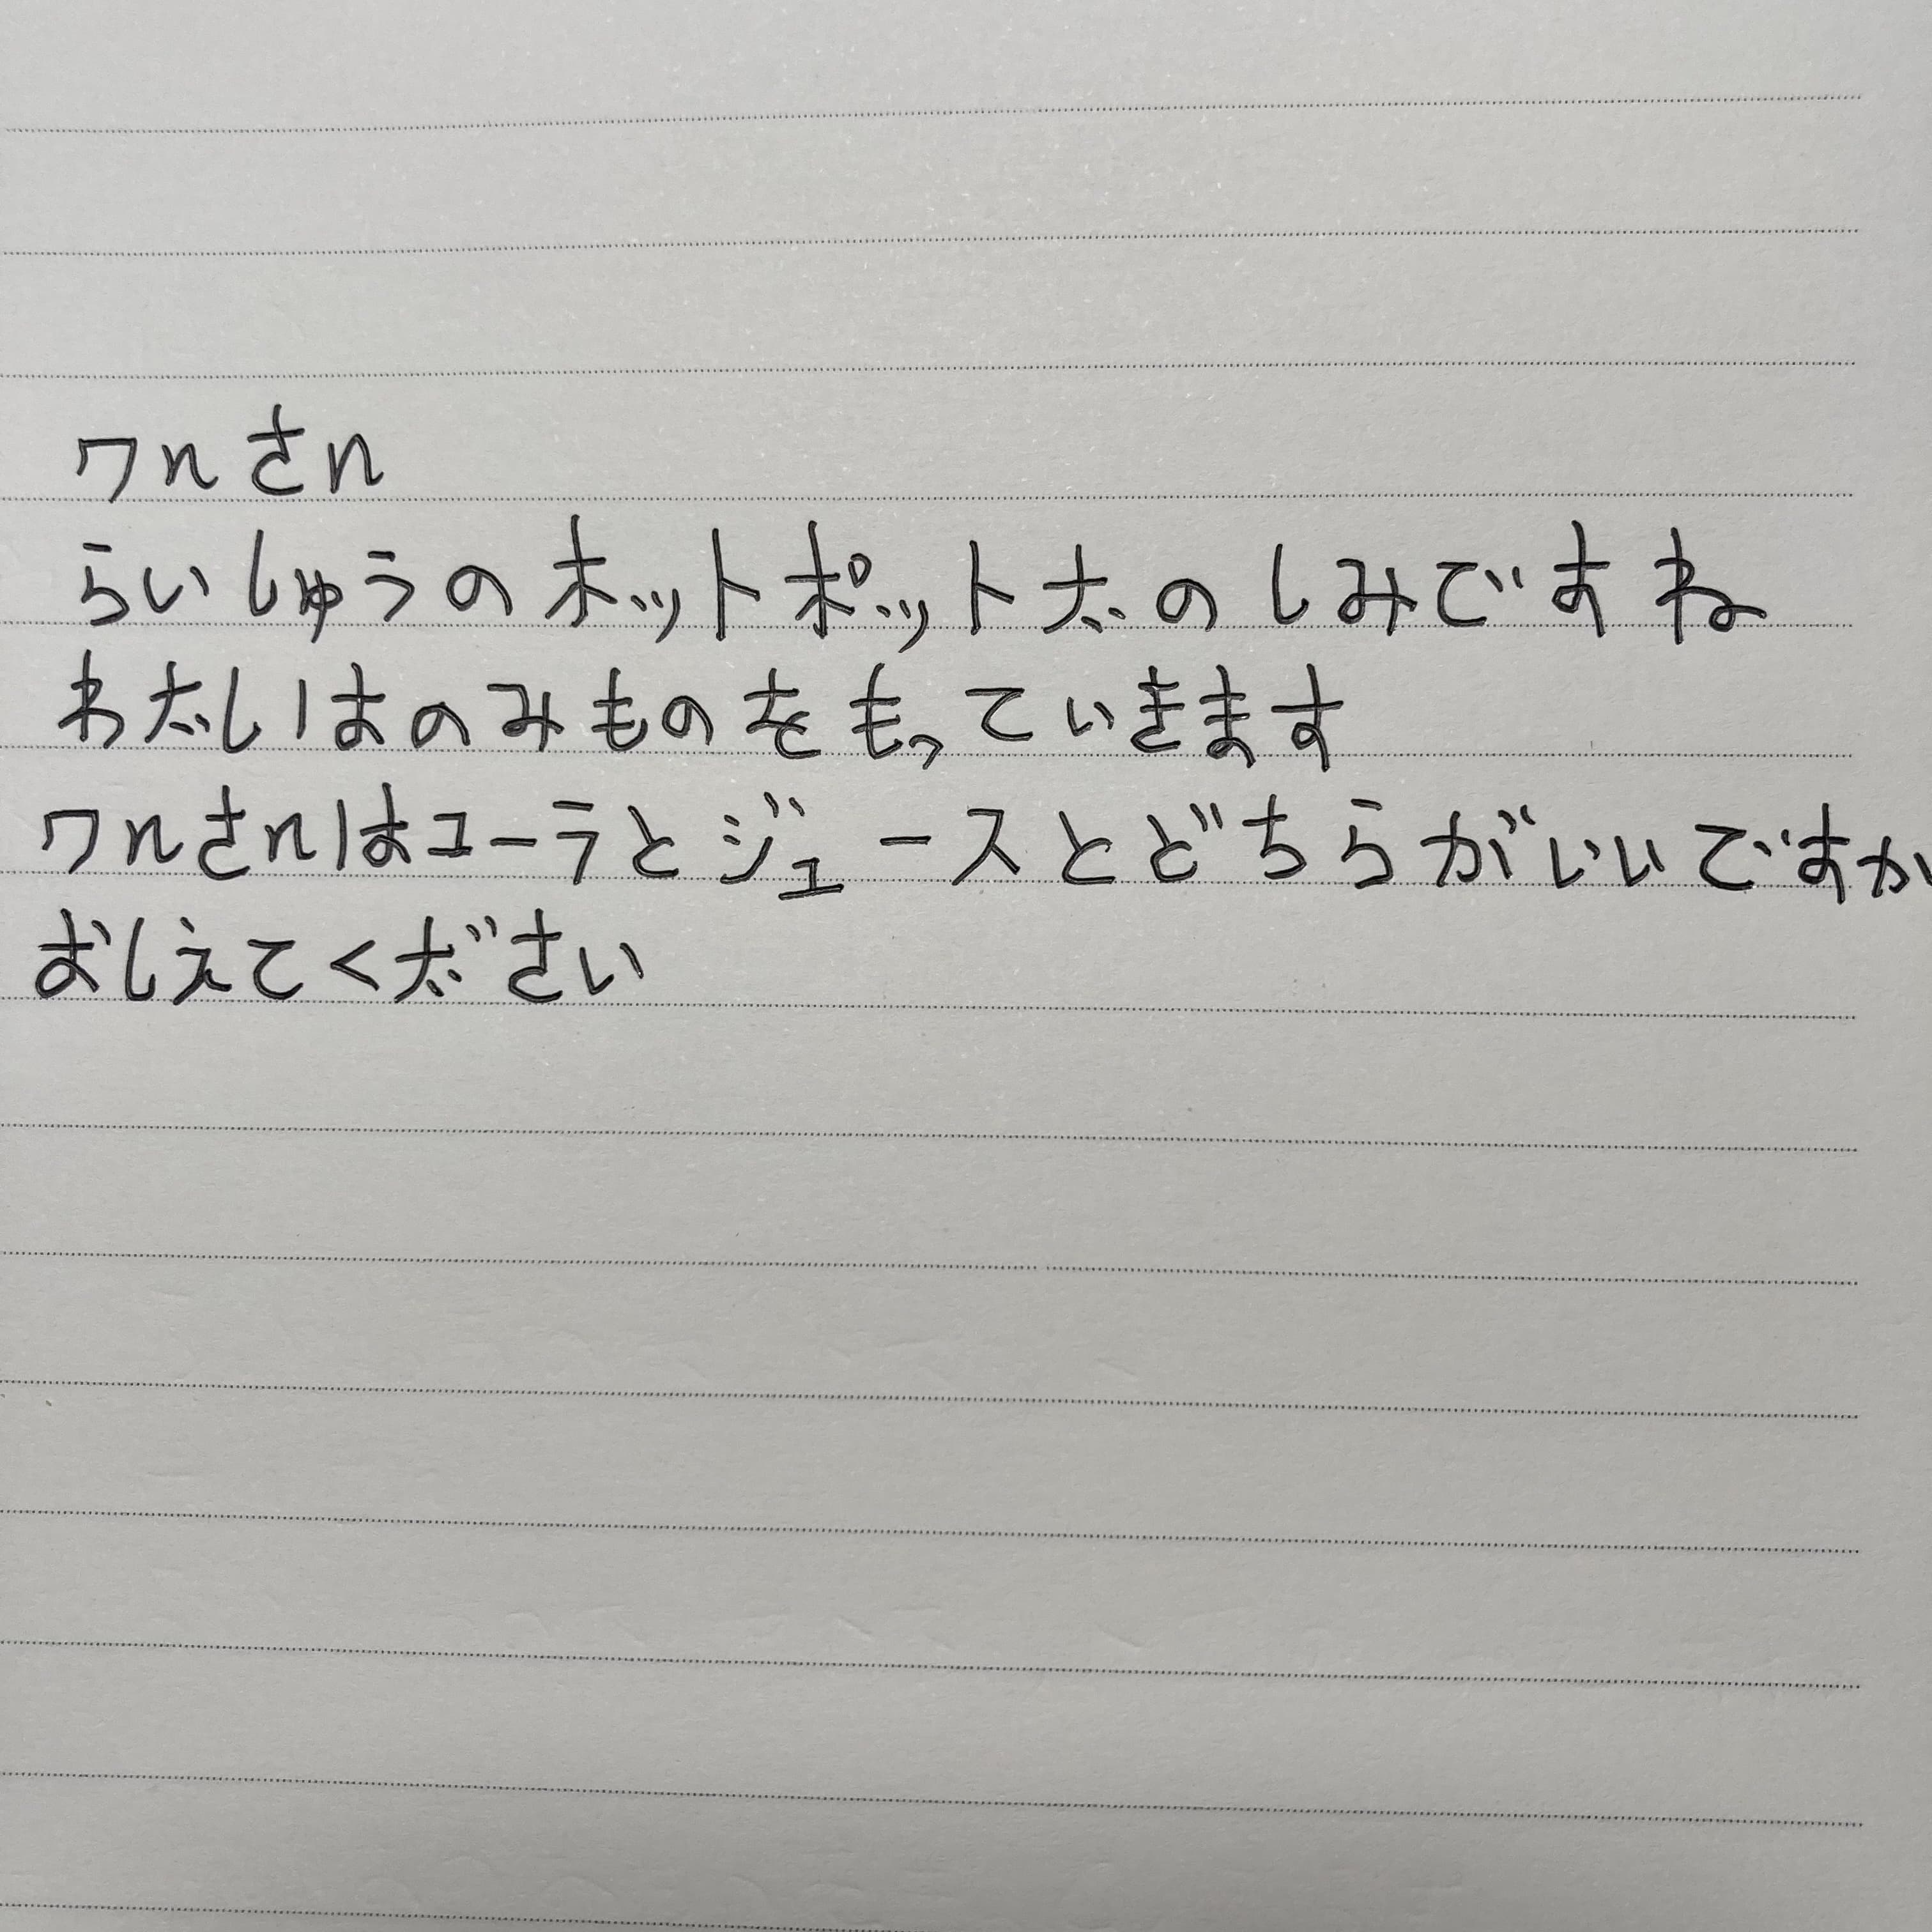 ワんさん
らいしゅうのホットポットたのしみですね
わたしはのみものをもっていきます
ワんさんはコーラとジュースとどちらがいいですか
おしえてください